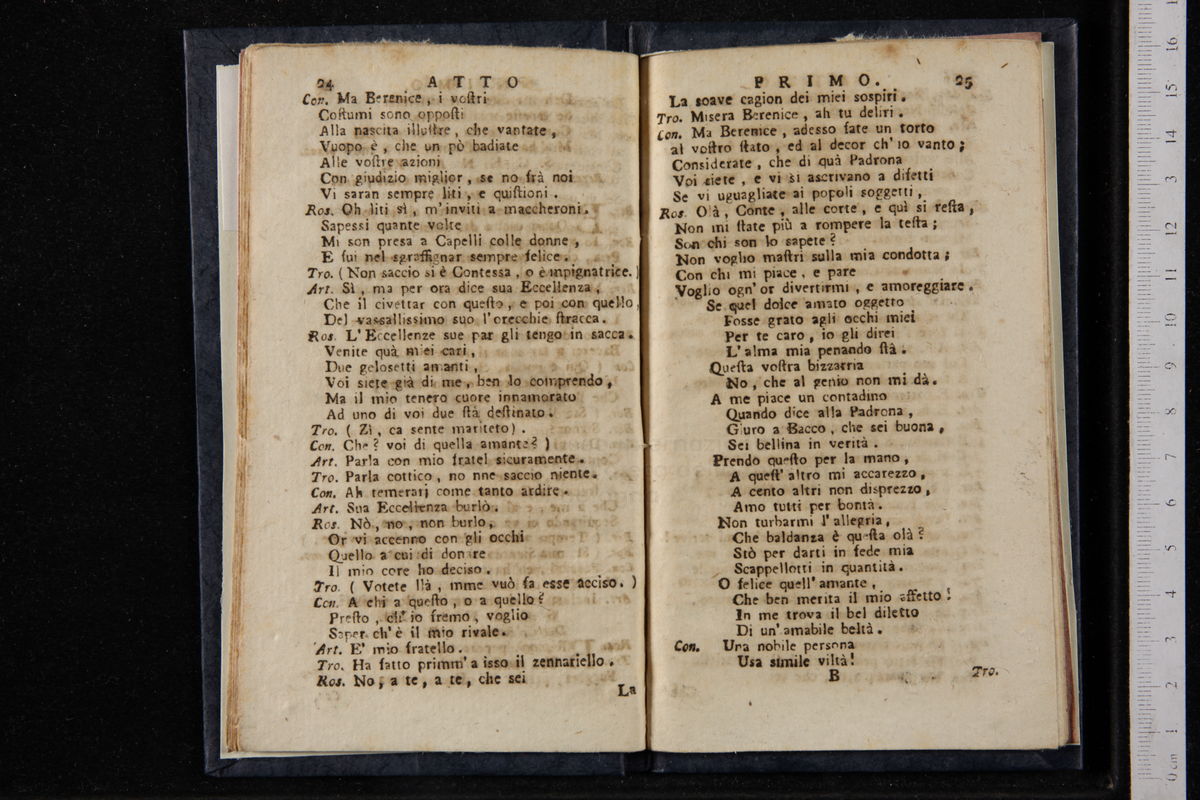 24 ATTO
Con. Ma Berenice, i voſtri
Coſtumi sono oppoſti
Alla nascita illuſtre, che vantate,
Vuopo è, che un pò badiate
Alle voſtre azioni
Con giudizio miglior, se no frà noi
Vi saran sempre liti, e quiſtioni.
Ros. Oh liti sì, m'inviti a maccheroni.
Sapessi quante volte
Mi son presa a Capelli colle donne,
E fui nel sgraffignar sempre felice.
Tro. (Non saccio si è Contessa, o è mpignatrice.)
Art. Sì, ma per ora dice sua Eccellenza,
Che il civettar con queſto, e poi con quello,
Del vassallissimo suo l'orecchie ſtracca.
Ros. L'Eccellenze sue par gli tengo in sacca.
Venite quà miei cari,
Due gelosetti amanti,
Voi siete già di me, ben lo comprendo,
Ma il mio tenero cuore innamorato
Ad uno di voi due ſtà deſtinato.
Tro. (Zì, ca sente mariteto).
Con. Che? voi di quella amante?)
Art. Parla con mio fratel sicuramente.
Tro. Parla cottico, no nne saccio niente.
Con. Ah temerarj come tanto ardire.
Art. Sua Eccellenza burlò.
Ros. Nò, no, non burlo,
Or vi accenno con gli occhi
Quello a cui di donare
Il mio core ho deciso.
Tro. (Votete llà, mme vuò fa esse acciso.)
Con. A chi a queſto, o a quello?
Preſto, ch'io fremo, voglio
Saper ch'è il mio rivale.
Art. E' mio fratello.
Tro. Ha fatto primm'a isso il zennariello.
Ros. No, a te, a te, che sei
La
PRIMO. 25
La soave cagion dei miei sospiri.
Tro. Misera Berenice, ah tu deliri.
Con. Ma Berenice, adesso fate un torto
al voſtro ſtato, ed al decor ch'io vanto;
Considerate, che di quà Padrona
Voi siete, e vi si ascrivano a difetti
Se vi uguagliate ai popoli soggetti,
Ros. Olà, Conte, alle corte, e quì si reſta,
Non mi ſtate più a rompere la teſta;
Son chi son lo sapete?
Non voglio maſtri sulla mia condotta;
Con chi mi piace, e pare
Voglio ogn'or divertirmi, e amoreggiare.
Se quel dolce amato oggetto
Fosse grato agli occhi miei
Per te caro, io gli direi
L'alma mia penando ſtà.
Queſta voſtra bizzarria
No, che al genio non mi dà.
A me piace un contadino
Quando dice alla Padrona,
Giuro a Bacco, che sei buona,
Sei bellina in verità.
Prendo queſto per la mano,
A queſt'altro mi accarezzo,
A cento altri non disprezzo,
Amo tutti per bontà.
Non turbarmi l'allegria,
Che baldanza è queſta olà?
Stò per darti in fede mia
Scappellotti in quantità.
O felice quell'amante,
Che ben merita il mio affetto!
In me trova il bel diletto
Di un'amabile beltà.
Con. Una nobile persona
Usa simile viltà!
B Tro.